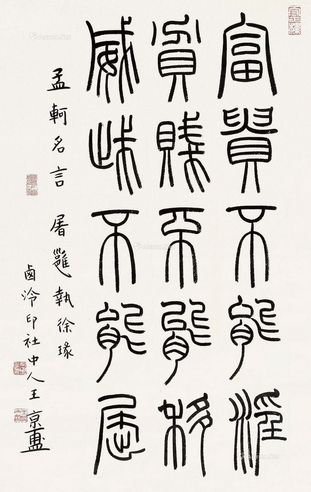 富貴不能淫
貧賤不能移
威武不能屈
孟軻名言 屠執徐瑑
西泠印社中人王京盙